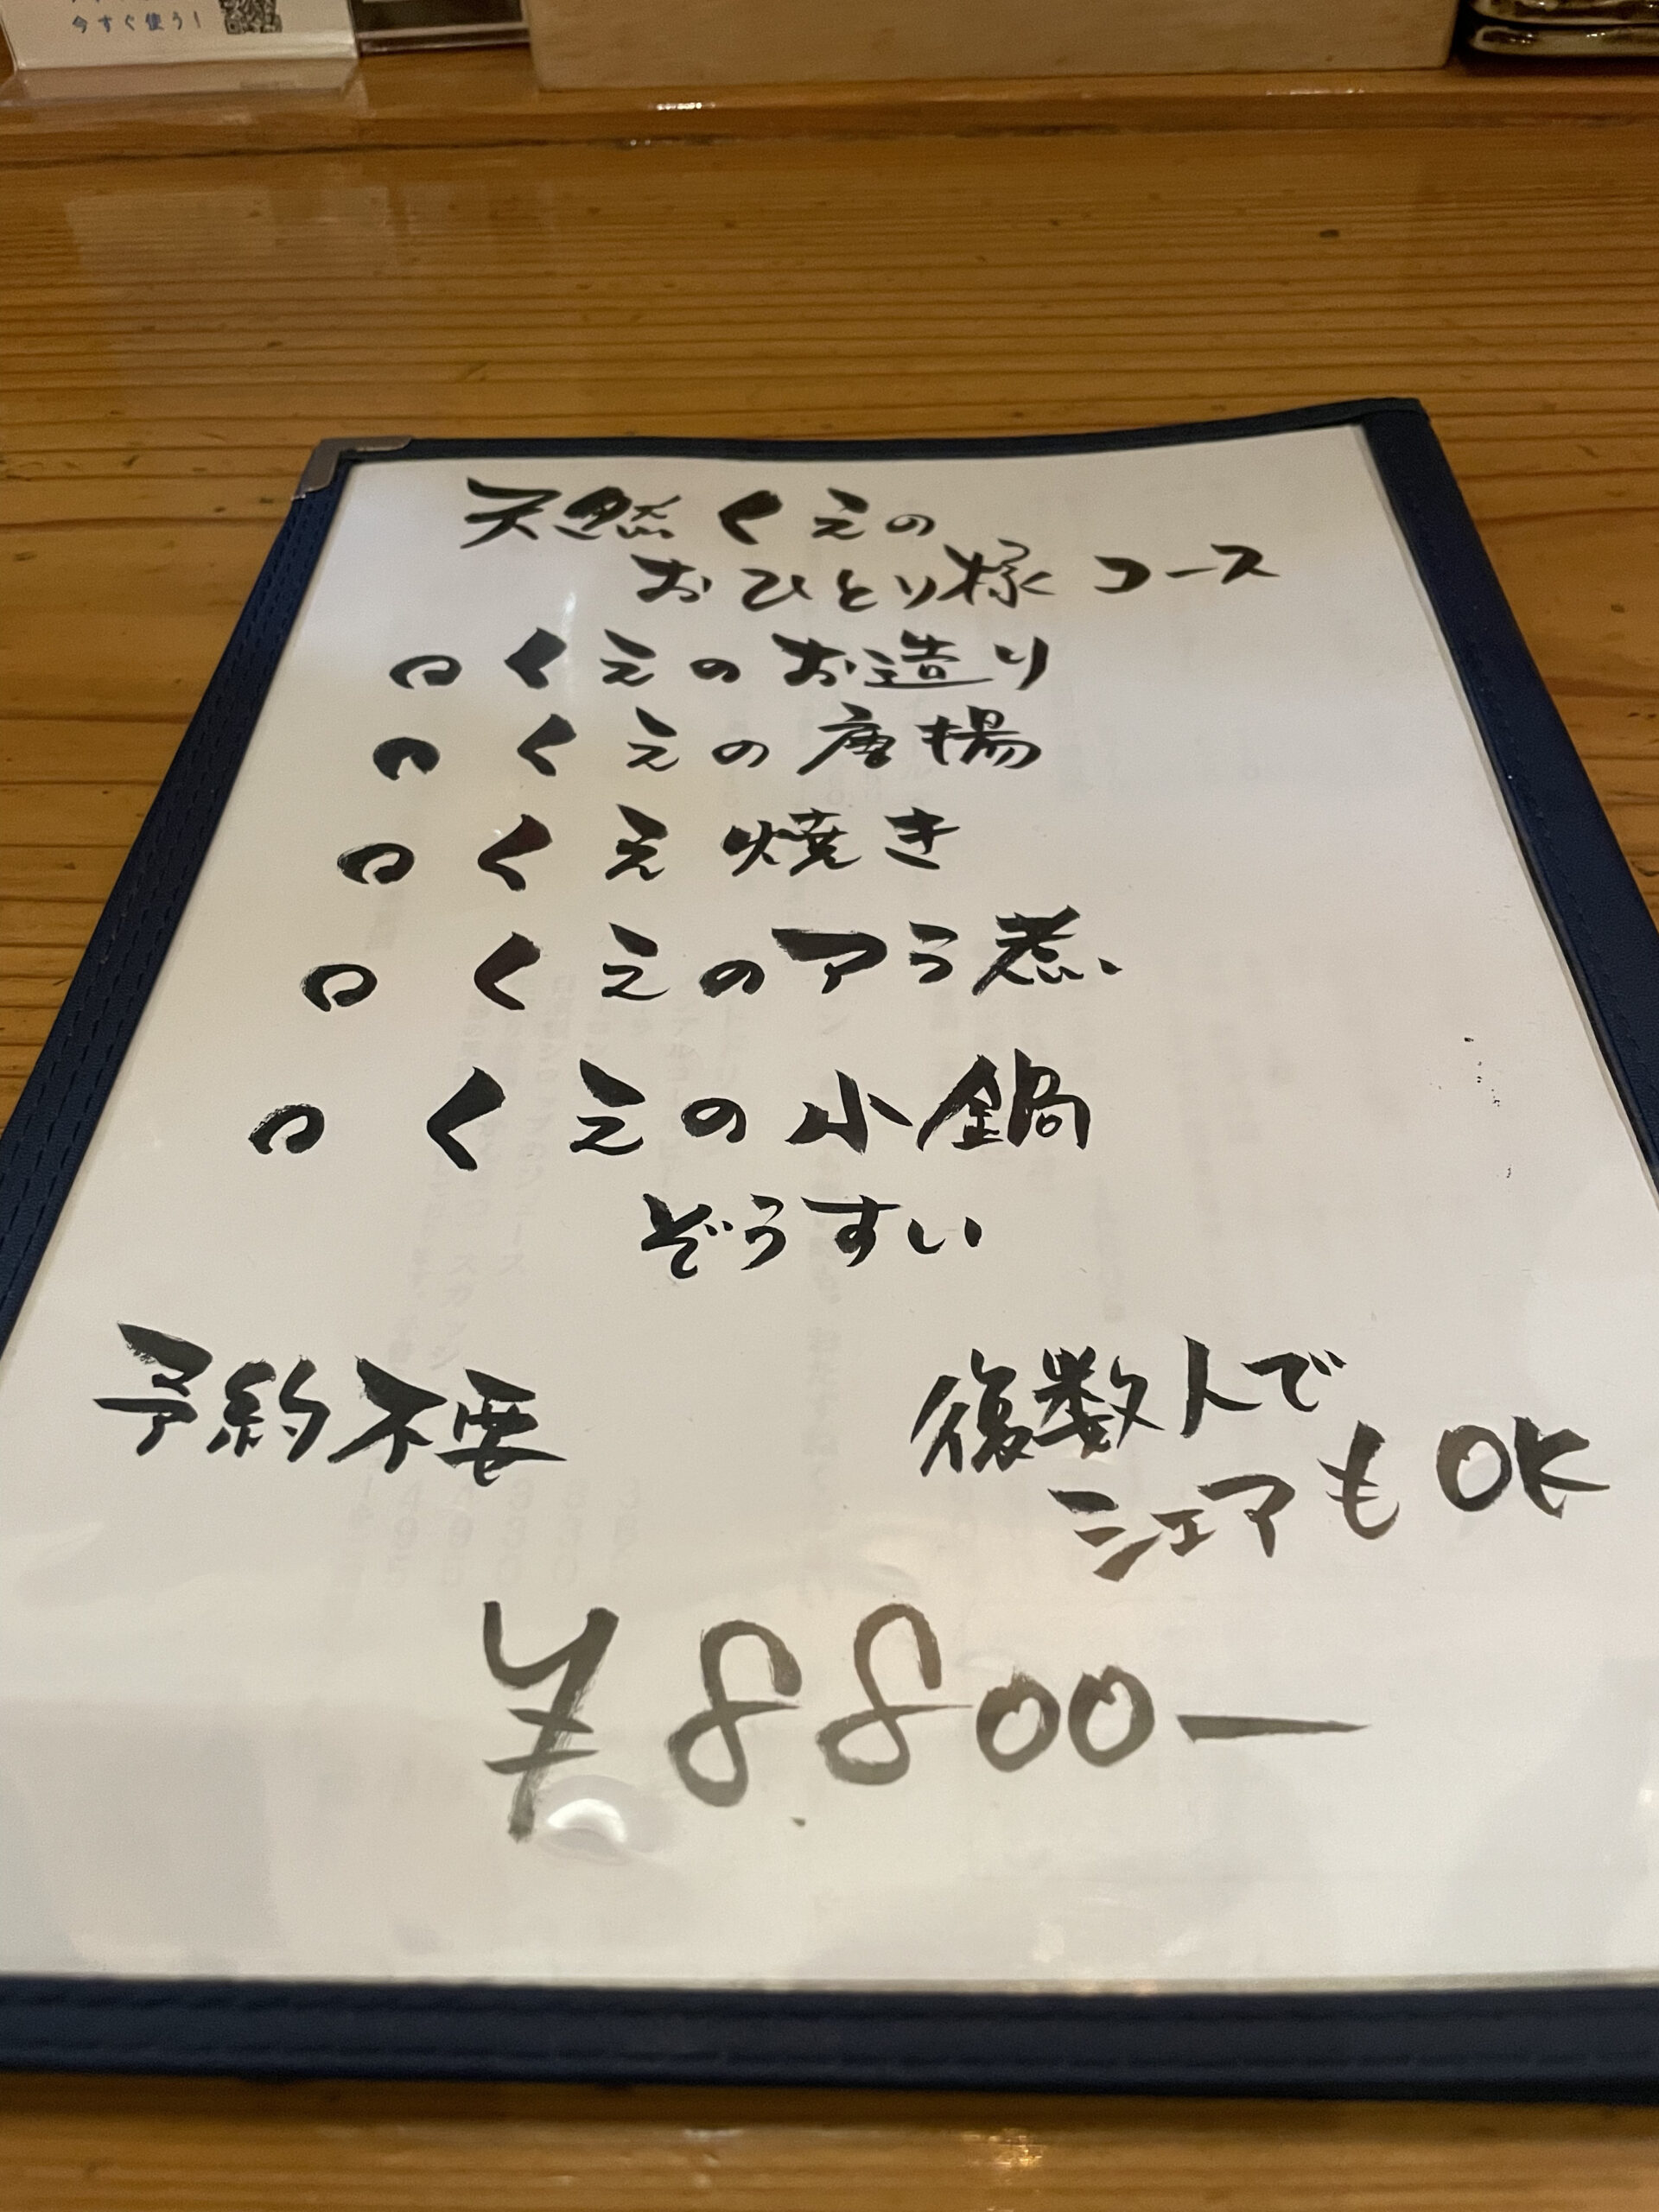 今すぐ使う!
天然くえの
おひとり様コース
○ くえのお造り
○ くえの唐揚
○ くえ焼き
○ くえのアラ煮
○ くえの小鍋
ぞうすい
予約不要
複数人で
シェアもOK
¥8800-